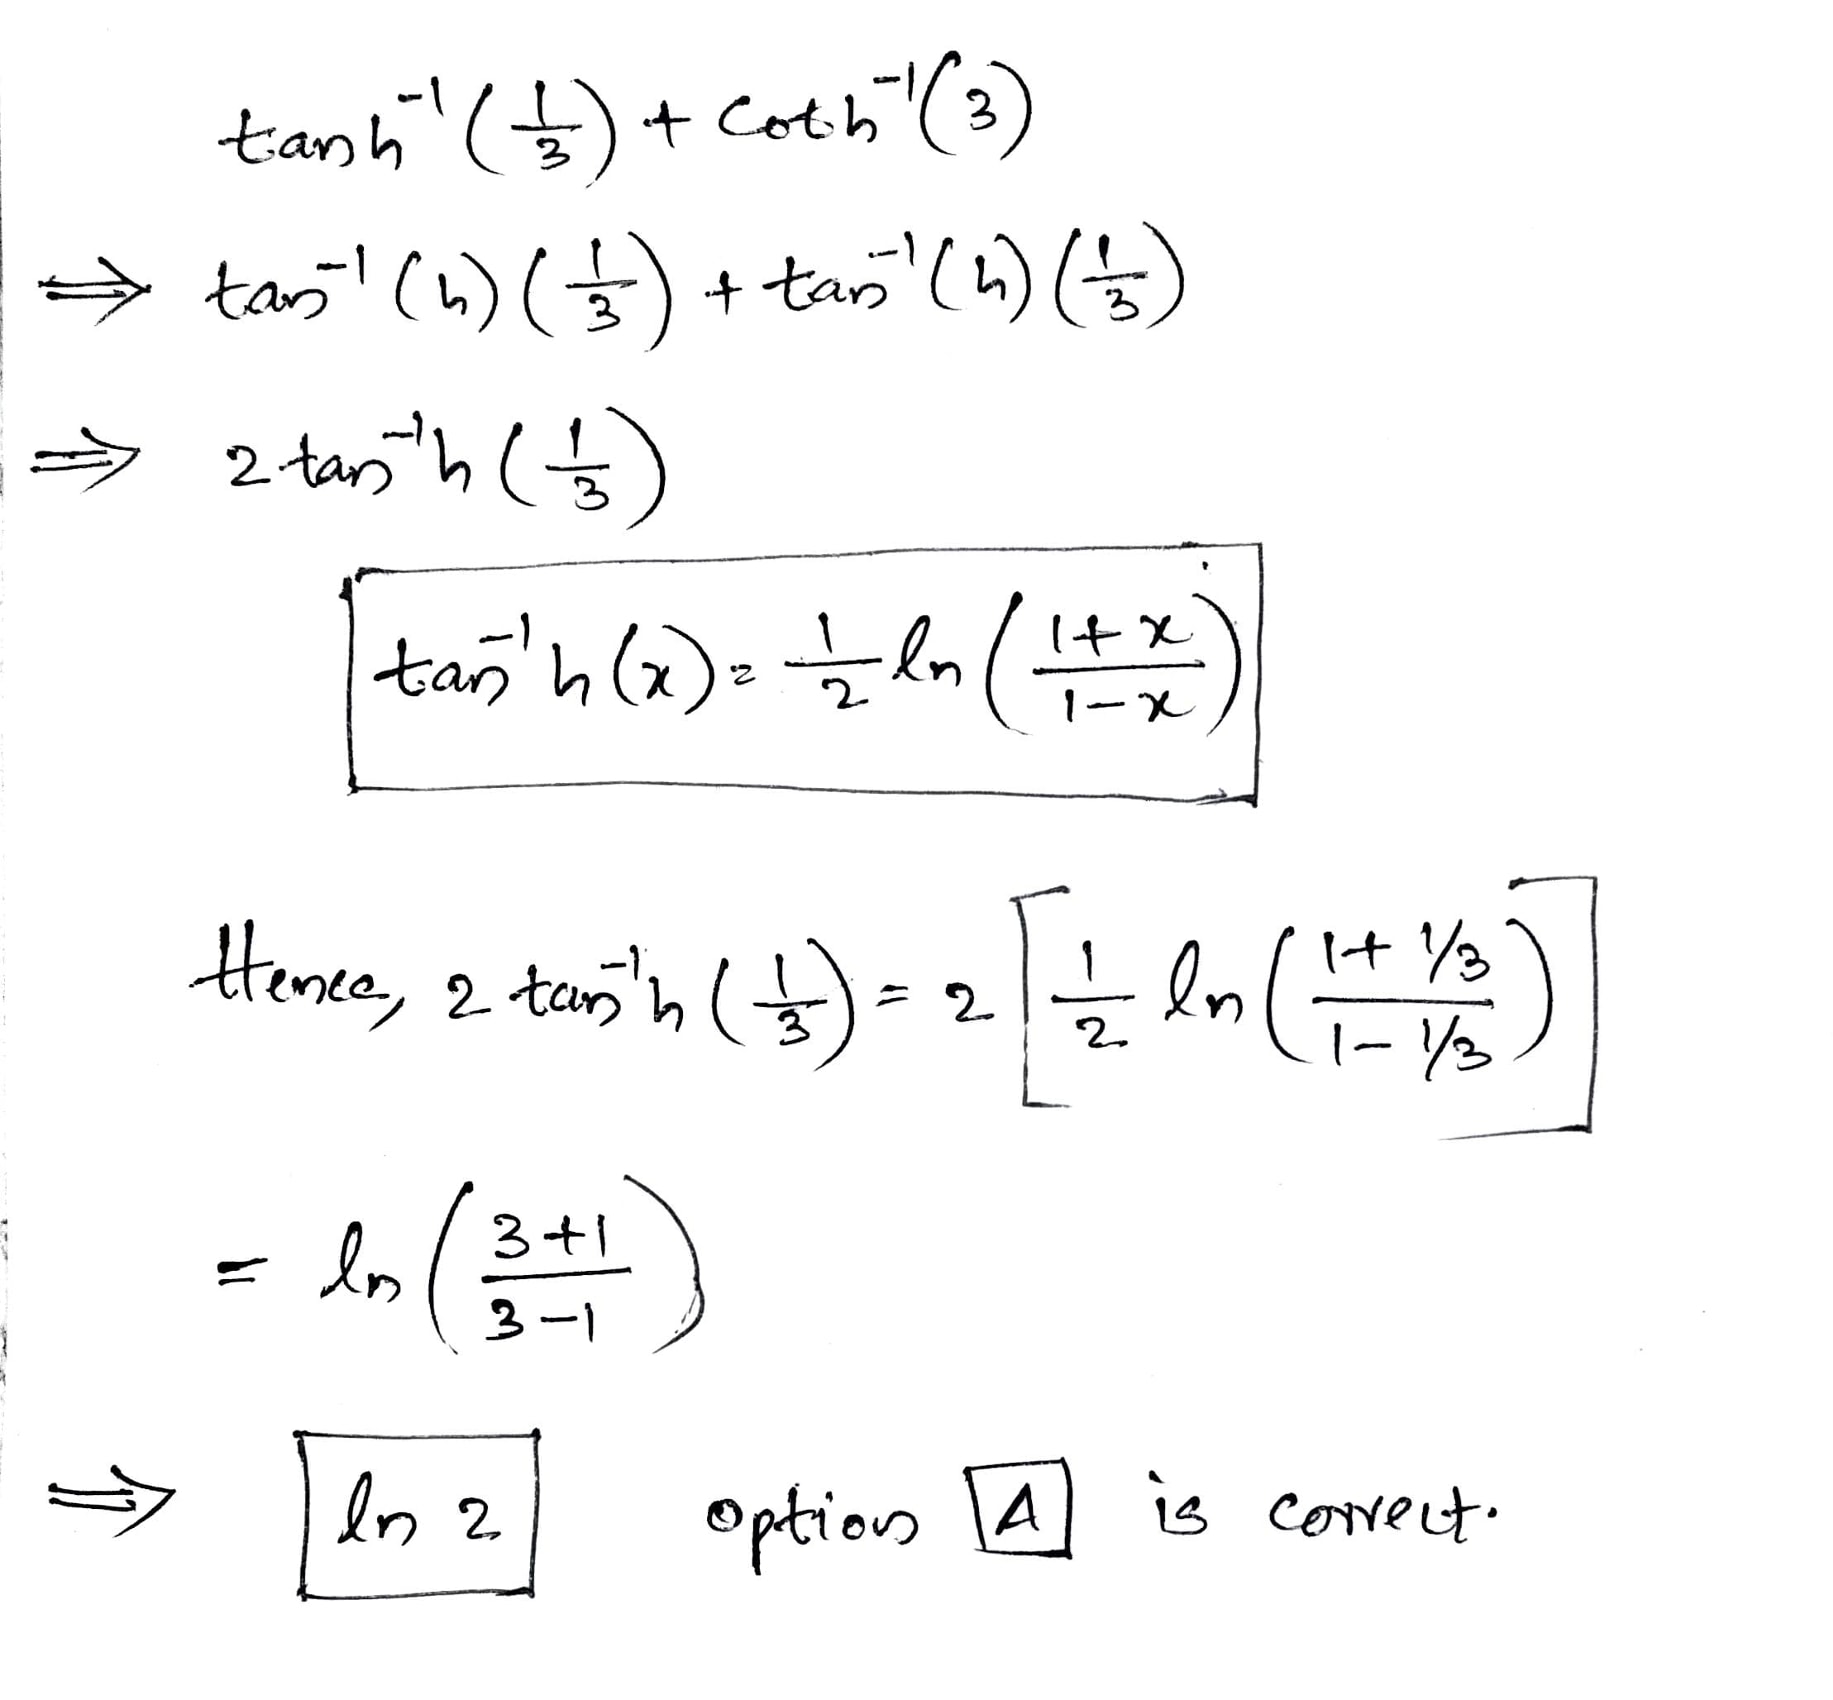 tanh⁻¹(1/3) + Coth⁻¹(3)
⇒ tan⁻¹(h)(1/3) + tan⁻¹(h)(1/3)
⇒ 2 tan⁻¹h(1/3)
tan⁻¹h(x) = 1/2 ln((1+x)/(1-x))
Hence, 2 tan⁻¹h(1/3) = 2[1/2 ln((1+1/3)/(1-1/3))]
= ln((3+1)/(3-1))
⇒ ln 2 option A is correct.